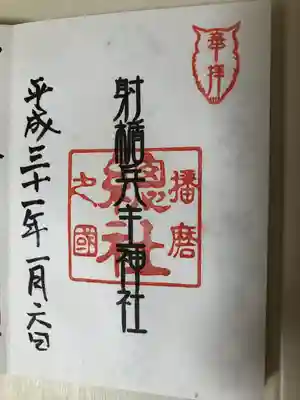 奉拝
射楯兵主神社
播磨
總社
之國
平成三十一年一月六日